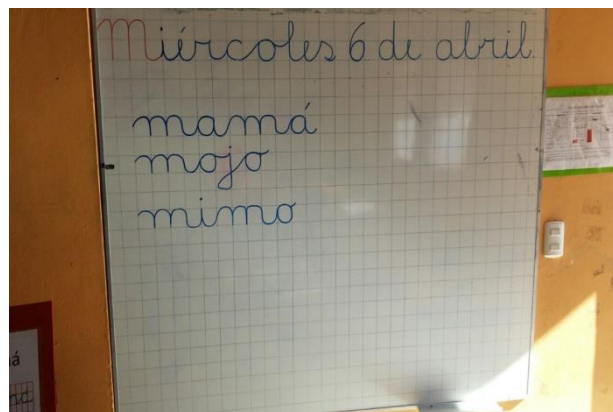 Miércoles 6 de abril.
mamá
mojo
mimo